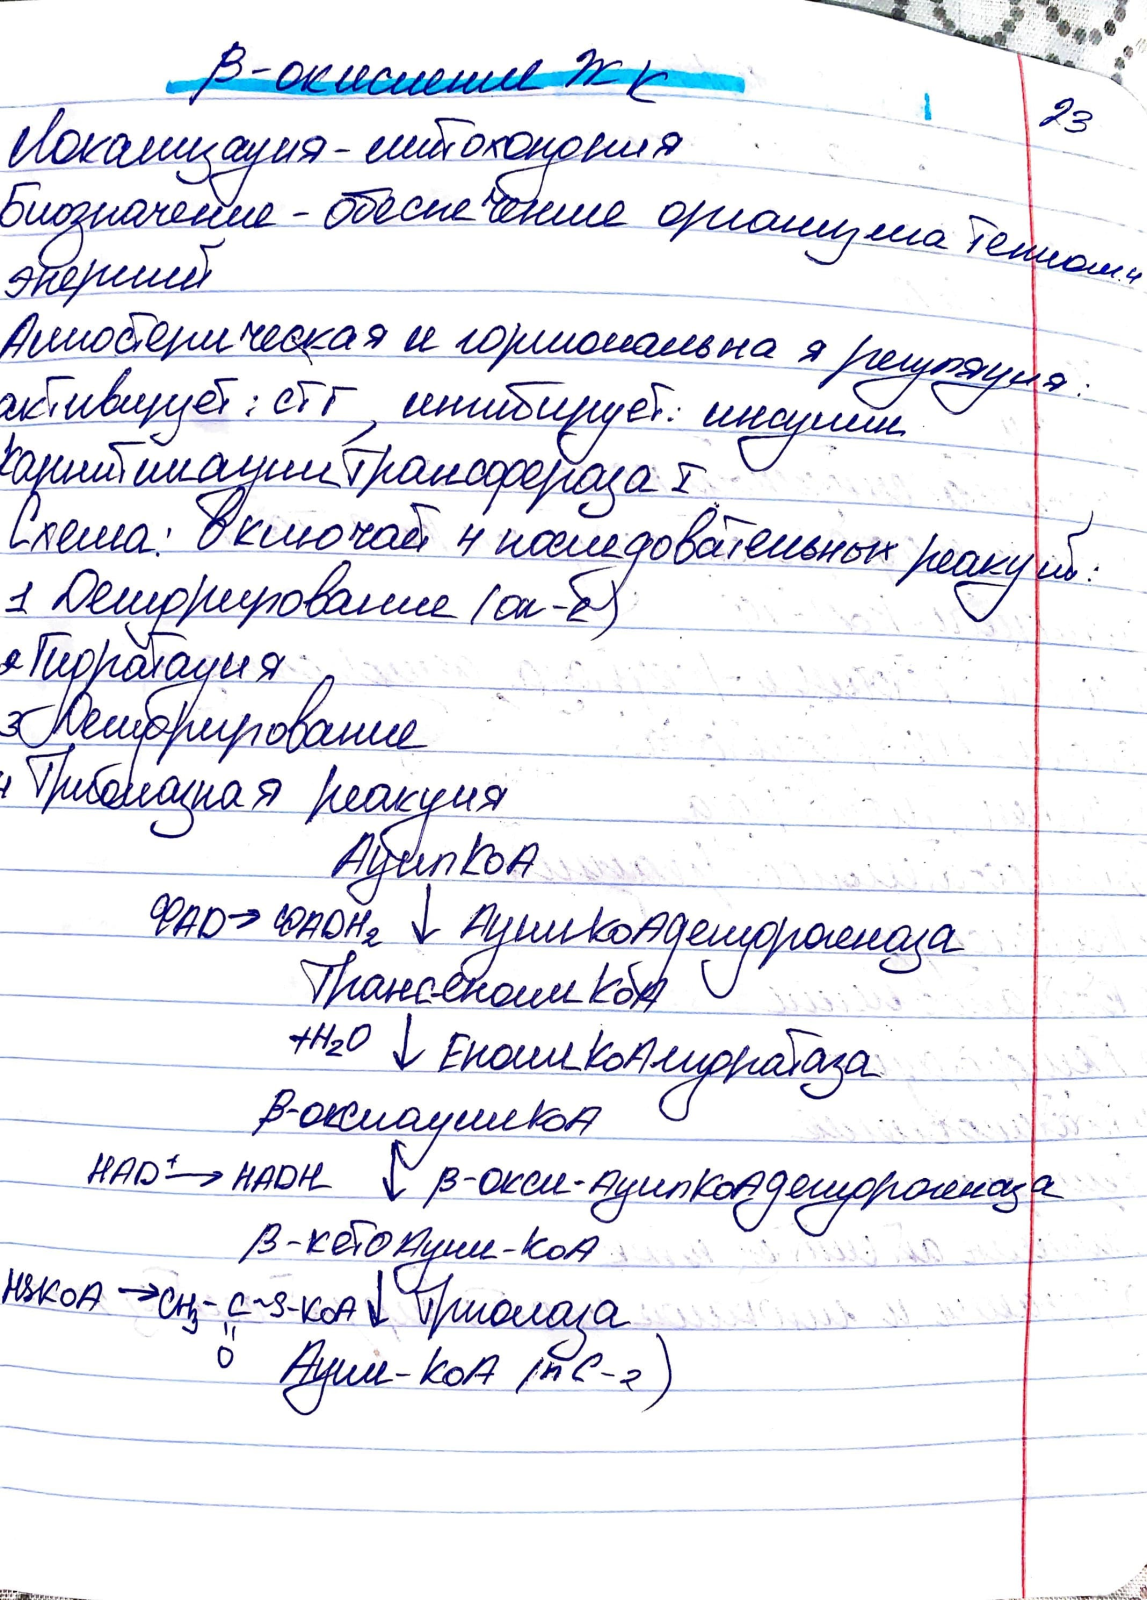 β-окисление ЖК
23
Локализация - митохондрия
Биозначение - обеспечение организма теплом и
энергией
Аллостерическая и гормональная регуляция:
активирует: СТГ, ингибирует: инсулин
Карнитинацилтрансфераза I
Схема: Включает 4 последовательных реакций:
1 Дегидрирование (ок-е)
2 Гидратация
3 Дегидрирование
4 Тиолазная реакция
АцилКоА
ФАD → ФАDH2 ↓ АцилКоАдегидрогеназа
Трансеноил КоА
+H2O ↓ ЕноилКоАгидратаза
β-оксиацилКоА
НАD+ → НАDH ↓ β-окси-АцилКоАдегидрогеназа
β-кетоАцил-КоА
HSКоА → CH3-C~S-КоА ↓ Тиолаза
||
O
Ацил-КоА (nC-2)